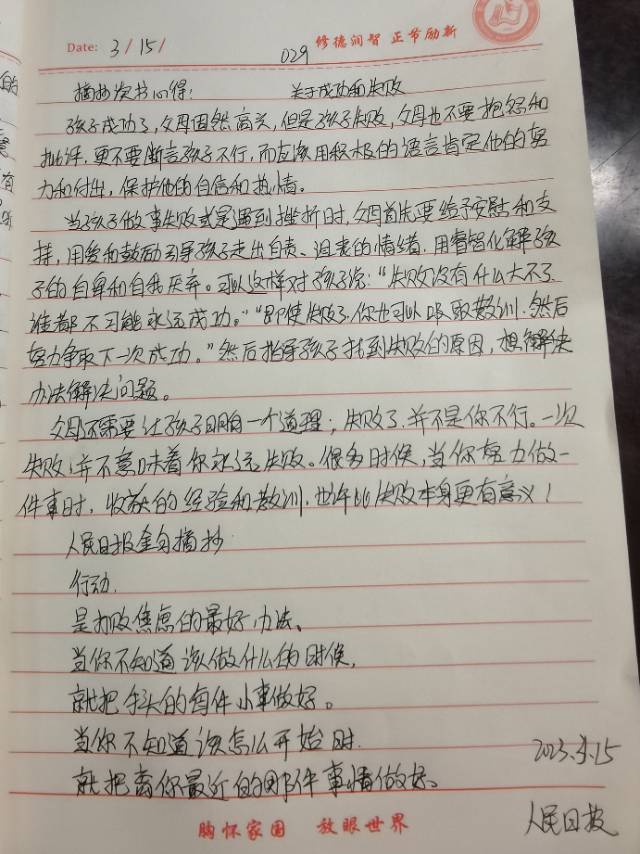 Date: 3/15/
029
修德润智 正节励新
摘抄读书心得： 关于成功和失败
孩子成功了，父母固然高兴，但是孩子失败，父母也不要抱怨和
批评，更不要断言孩子不行，而应该用积极的语言肯定他的努
力和付出，保护他的自信和热情。
当孩子做事失败或是遇到挫折时，父母首先要给予安慰和支
持，用爱和鼓励引导孩子走出自责、沮丧的情绪，用睿智化解孩
子的自卑和自我厌弃。可以这样对孩子说：“失败没有什么大不了
谁都不可能永远成功。”“即使失败了，你也可以吸取教训，然后
努力争取下一次成功。”然后指导孩子找到失败的原因，想解决
办法解决问题。
父母还需要让孩子明白一个道理；失败了，并不是你不行。一次
失败，并不意味着你永远失败。很多时候，当你努力做一
件事时，收获的经验和教训，也许比失败本身更有意义！
人民日报金句摘抄
行动，
是打败焦虑的最好办法、
当你不知道该做什么的时候，
就把手头的每件小事做好。
当你不知道该怎么开始时，
就把离你最近的那件事情做好。
2023.3.15
人民日报
胸怀家国 放眼世界